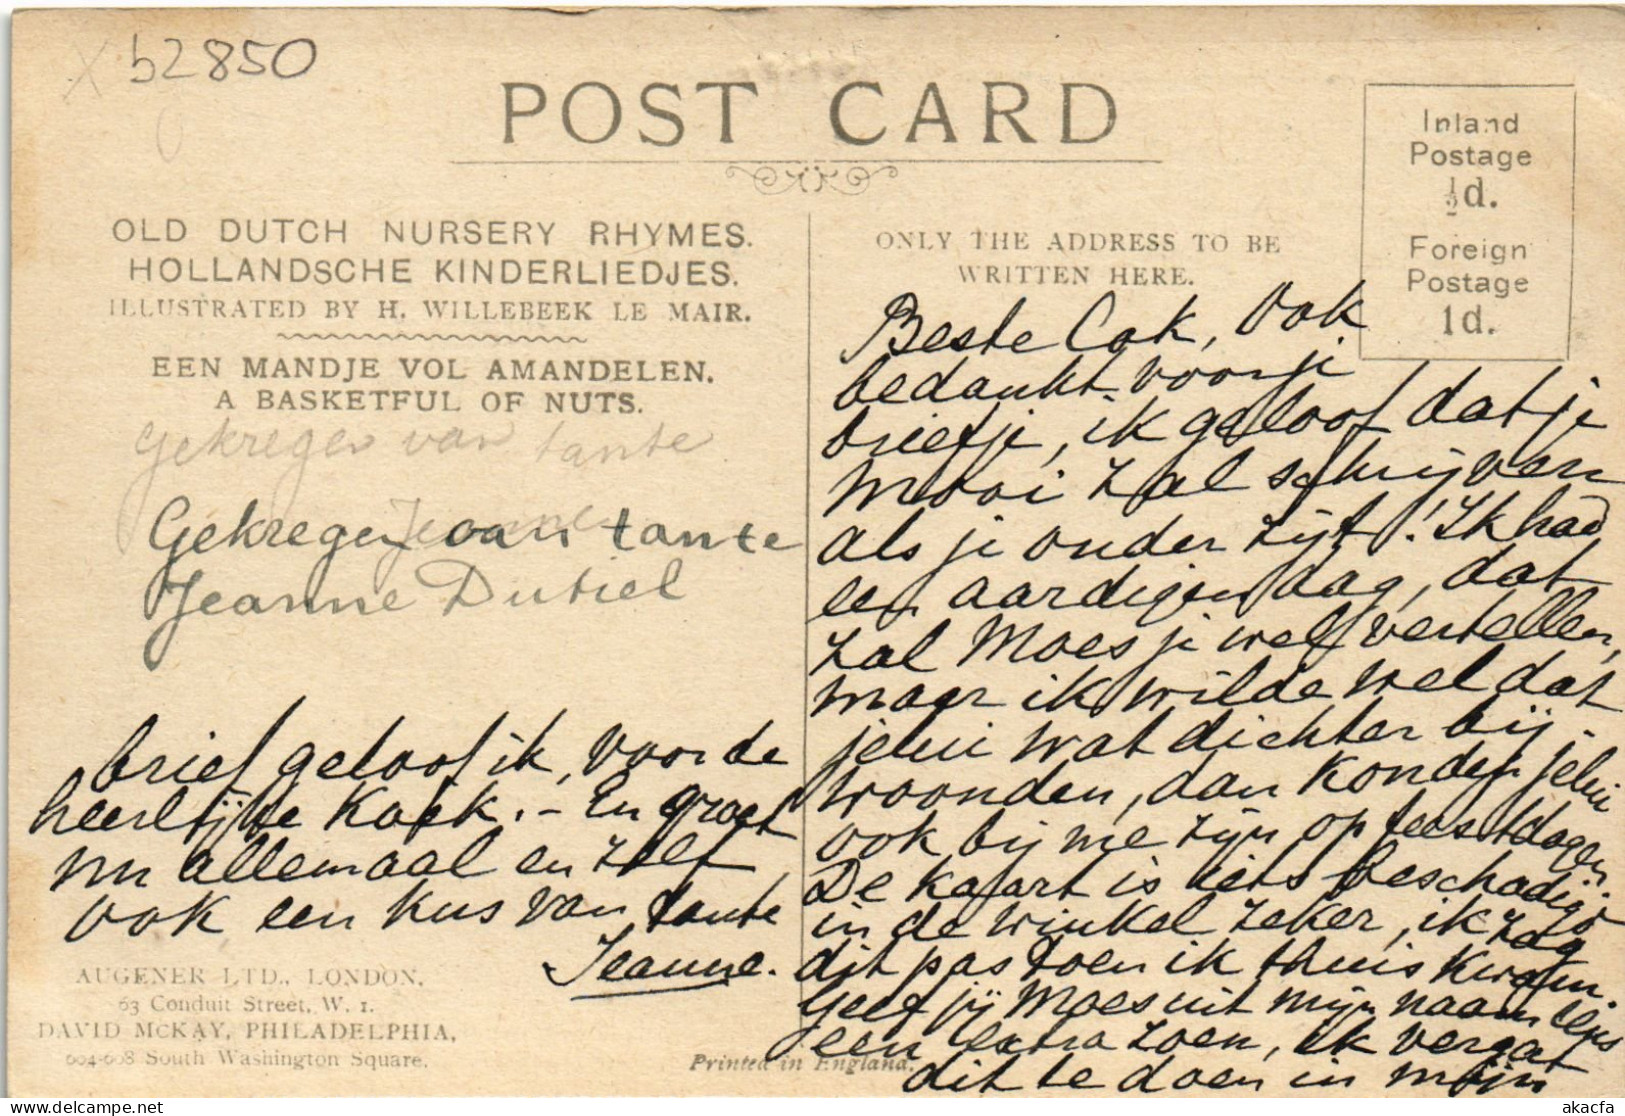 b2850
POST CARD
Inland
Postage
½d.
Foreign
Postage
1d.
OLD DUTCH NURSERY RHYMES.
HOLLANDSCHE KINDERLIEDJES.
ILLUSTRATED BY H. WILLEBEEK LE MAIR.
EEN MANDJE VOL AMANDELEN.
A BASKETFUL OF NUTS.
Gekregen van tante
Jeanne
Gekregen van tante
Jeanne Dutiel
ONLY THE ADDRESS TO BE
WRITTEN HERE.
Beste Cok, Ook
bedankt voor je
briefje, ik geloof dat je
mooi zal schrijven
als je ouder zijt! Ik had
een aardigen dag, dat
zal Moes je wel vertellen,
maar ik wilde wel dat
jelui wat dichter bij
woonden, dan konden jelui
ook bij me zijn op feestdagen.
De kaart is iets beschadigd
in de winkel zeker, ik zag
dit pas toen ik thuis kwam.
Geef jij Moes uit mijn naam
een extra zoen, ik vergat
dit te doen in mijn
brief geloof ik, voor de
heerlijke koek. - En groet
nu allemaal en zelf
ook een kus van tante
Jeanne.
AUGENER LTD., LONDON,
63 Conduit Street, W. 1.
DAVID McKAY, PHILADELPHIA,
604-608 South Washington Square.
Printed in England.
akacfa